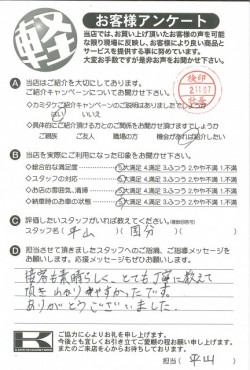 軽
お客様アンケート
当店では、お買い上げ頂いたお客様の声を可能
な限り現場に反映し、お客様により良い商品と
サービスを提供する事に努めています。
大変お手数ですが是非お声をお聞かせ下さい。
A 当店はご紹介を大切にしております。
ご紹介キャンペーンについてお聞かせ下さい。
・カミタケご紹介キャンペーンのご説明はありましたでしょうか
はい いいえ
・具体的にご紹介頂ける方とのご関係をお聞かせ頂けますでしょうか
ご親族 ご友人 職場の方 機会があれば紹介したい
検印
B 当店を実際にご利用になった印象をお聞かせ下さい。
・総合的な満足度 5.大満足 4.満足 3.ふつう 2.やや不満 1.不満
・スタッフの対応 5.大満足 4.満足 3.ふつう 2.やや不満 1.不満
・お店の雰囲気、清掃 5.大満足 4.満足 3.ふつう 2.やや不満 1.不満
・納車時のお車の状態 5.大満足 4.満足 3.ふつう 2.やや不満 1.不満
C 評価したいスタッフがいれば教えてください。(複数回答可)
スタッフ名( 平山 )( 国分 )
D 担当させて頂きましたスタッフへのご感想、ご指導メッセージを
お願いします。応援メッセージもぜひお願いします。
接客も素晴らしく、とても丁寧に教えて
頂きわかりやすかったです。
ありがとうございました。
K
ご協力に心よりお礼を申し上げます。
今後とも宜しくお引き立てご愛顧の程お願い申し上げます。
またのご来店を心からお待ちしております。
担当( 平山 )